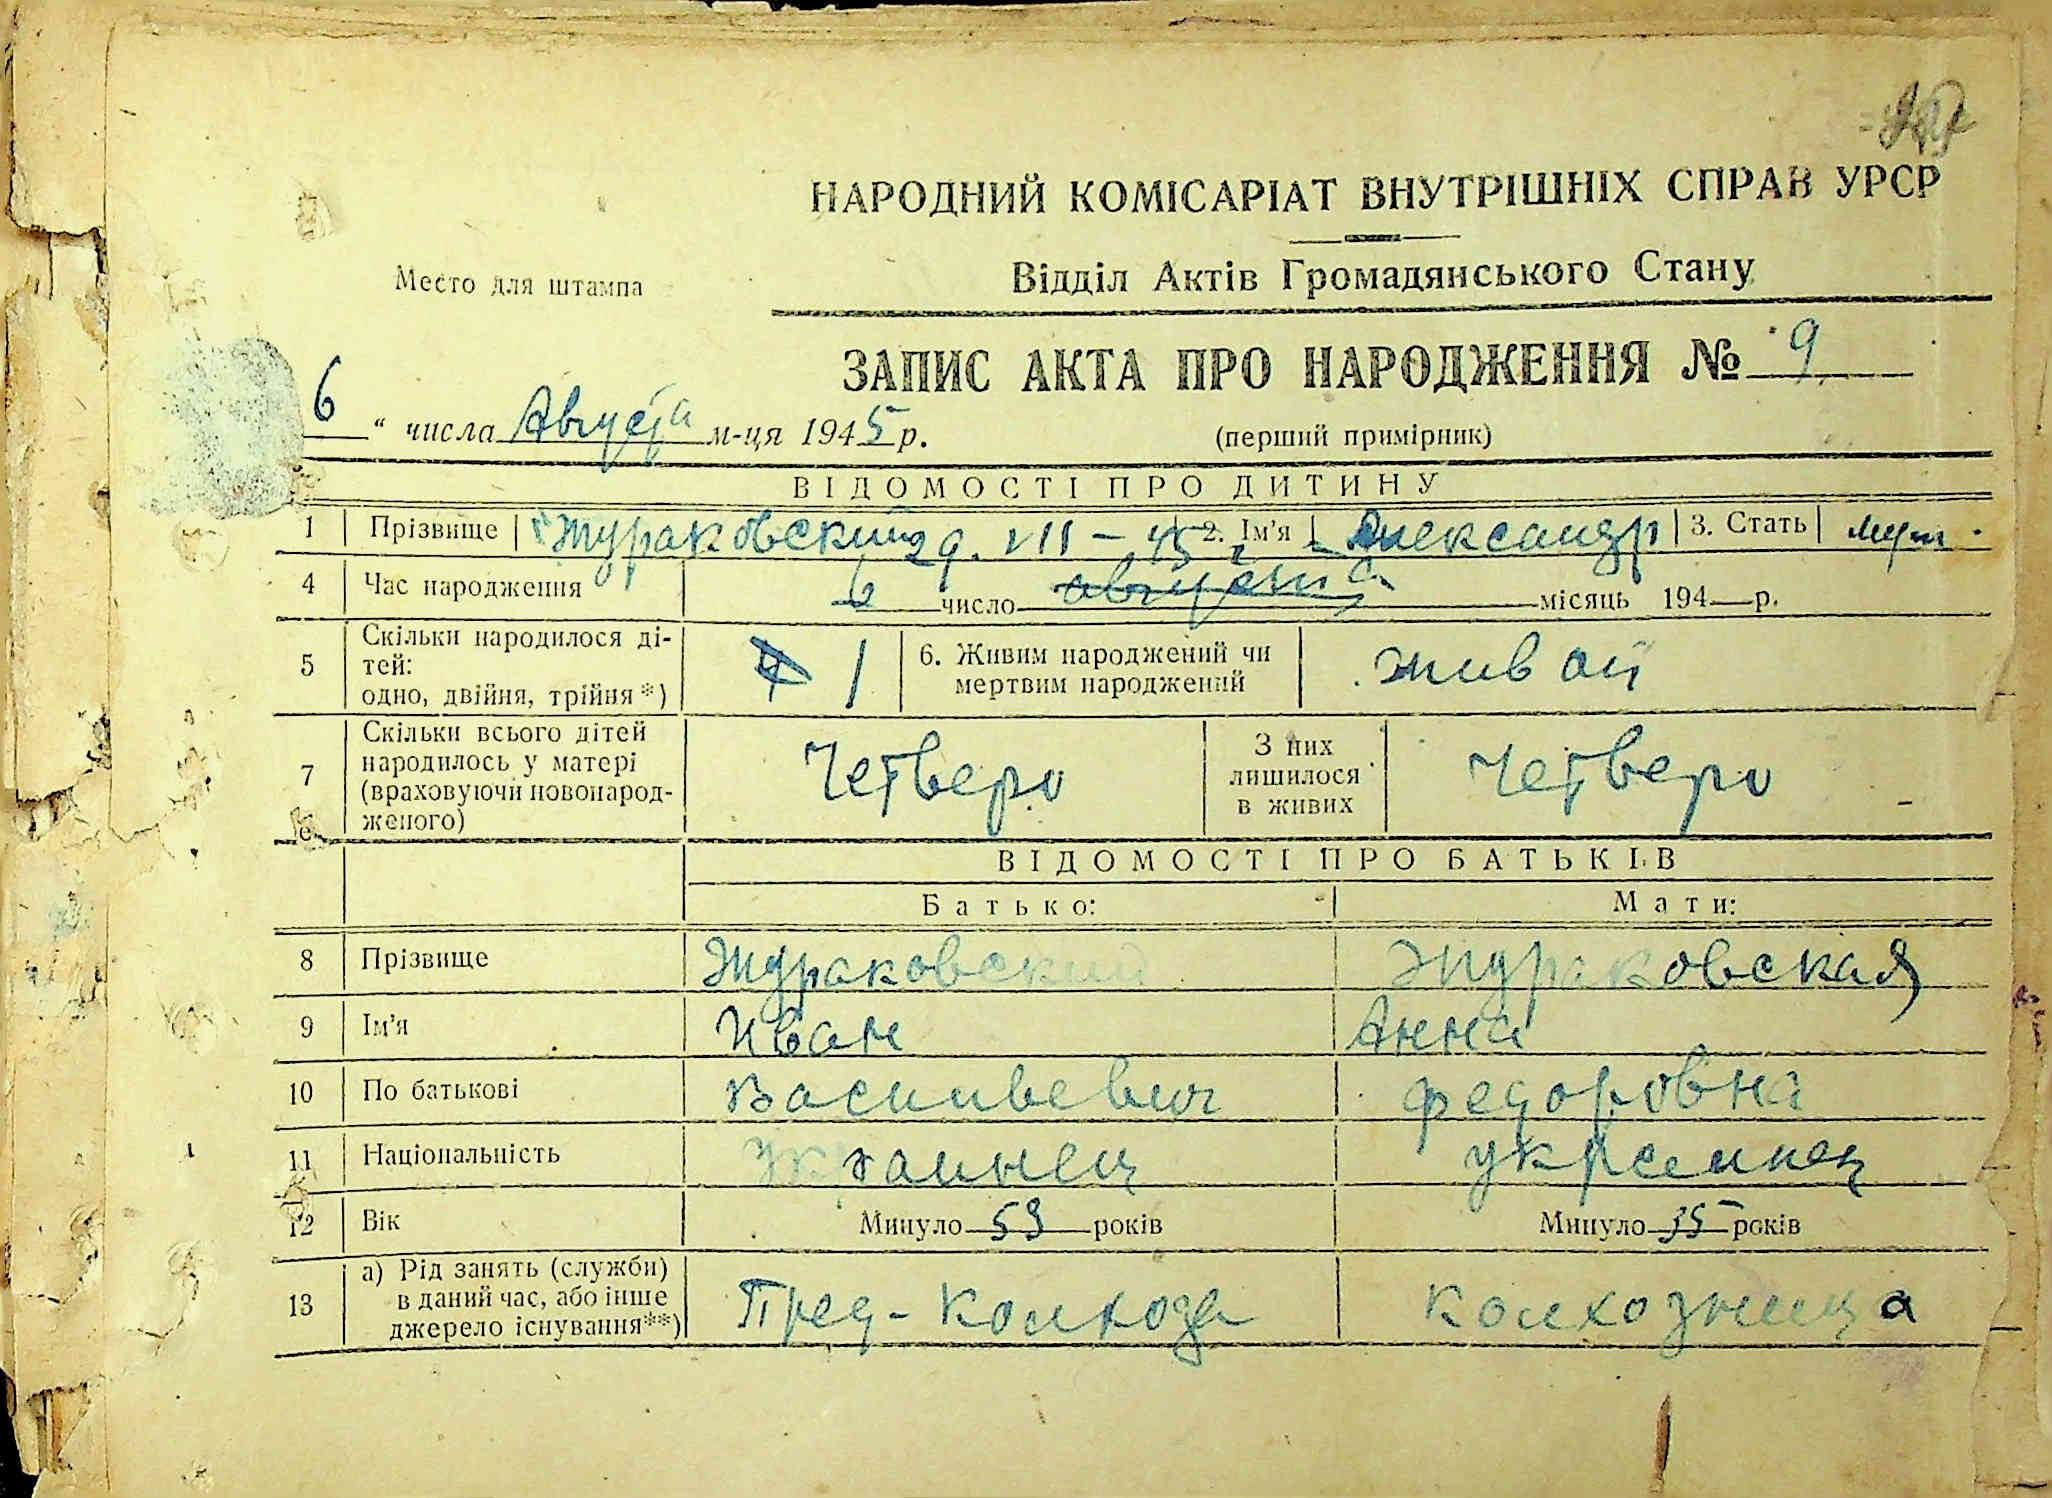 НАРОДНИЙ КОМІСАРІАТ ВНУТРІШНІХ СПРАВ УРСР
Место для штампа
Відділ Актів Громадянського Стану
ЗАПИС АКТА ПРО НАРОДЖЕННЯ № 9
6 " числа Августа м-ця 1945 р.
(перший примірник)
ВІДОМОСТІ ПРО ДИТИНУ
1 Прізвище Жураковский 29. VII – 45 2. Ім'я Александр 3. Стать муж.
4 Час народження 6 число августа місяць 194 р.
5 Скільки народилося ді-
тей:
одно, двійня, трійня *) 1
6. Живим народжений чи
мертвим народжений живой
7 Скільки всього дітей
народилось у матері
(враховуючи новонарод-
женого) Четверо
З них
лишилося
в живих Четверо
ВІДОМОСТІ ПРО БАТЬКІВ
Батько: Мати:
8 Прізвище Жураковский Жураковская
9 Ім'я Иван Анна
10 По батькові Васильевич Федоровна
11 Національність украинец украинец
12 Вік Минуло 53 років Минуло 35 років
13 а) Рід занять (служби)
в даний час, або інше
джерело існування**) Пред-колхоза колхозница